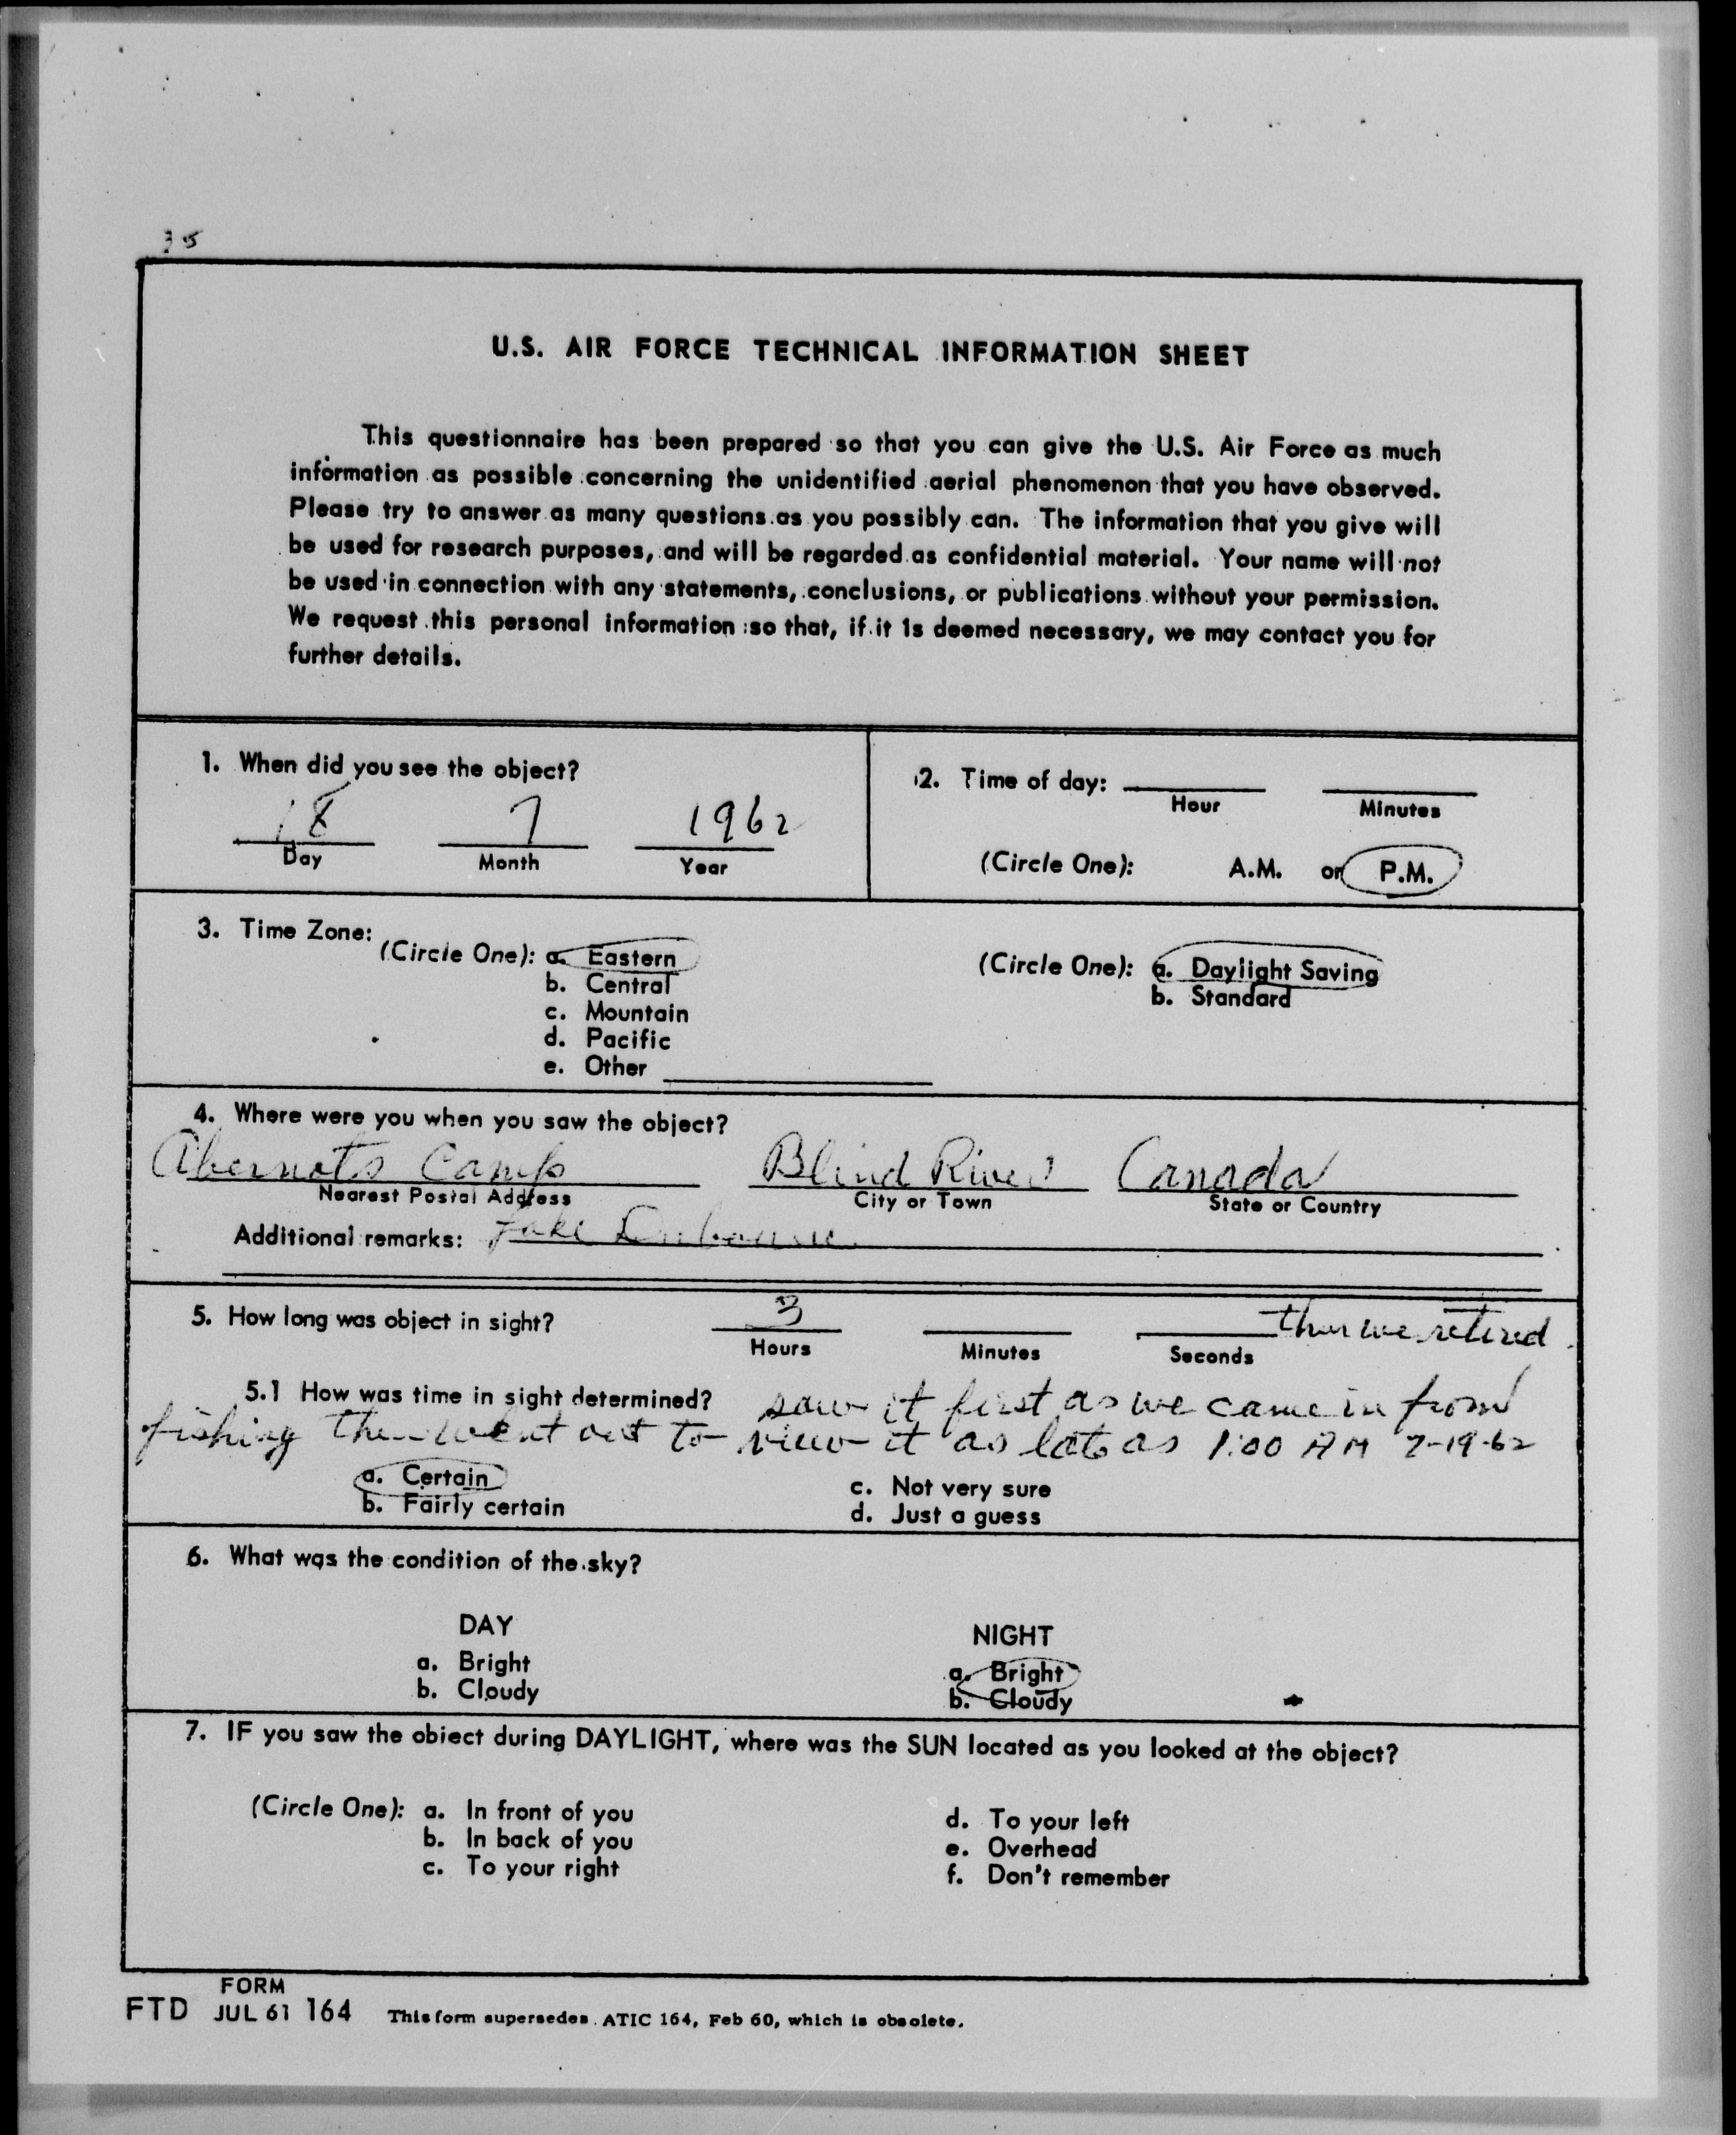 35
U.S. AIR FORCE TECHNICAL INFORMATION SHEET
This questionnaire has been prepared so that you can give the U.S. Air Force as much
information as possible concerning the unidentified aerial phenomenon that you have observed.
Please try to answer as many questions as you possibly can. The information that you give will
be used for research purposes, and will be regarded as confidential material. Your name will not
be used in connection with any statements, conclusions, or publications without your permission.
We request this personal information so that, if it is deemed necessary, we may contact you for
further details.
1. When did you see the object?
18 7 1962
Day Month Year
2. Time of day:
Hour Minutes
(Circle One): A.M. or P.M.
3. Time Zone:
(Circle One): a. Eastern
b. Central
c. Mountain
d. Pacific
e. Other
(Circle One): a. Daylight Saving
b. Standard
4. Where were you when you saw the object?
Camp Blind River Canada
Nearest Postal Address City or Town State or Country
Additional remarks: Lake
5. How long was object in sight? 3 then we retired
Hours Minutes Seconds
5.1 How was time in sight determined? saw it first as we came in from
fishing then went out to view it as late as 1:00 AM 7-19-62
a. Certain
b. Fairly certain
c. Not very sure
d. Just a guess
6. What was the condition of the sky?
DAY
a. Bright
b. Cloudy
NIGHT
a. Bright
b. Cloudy
7. IF you saw the object during DAYLIGHT, where was the SUN located as you looked at the object?
(Circle One): a. In front of you
b. In back of you
c. To your right
d. To your left
e. Overhead
f. Don't remember
FORM
FTD JUL 61 164 This form supersedes ATIC 164, Feb 60, which is obsolete.